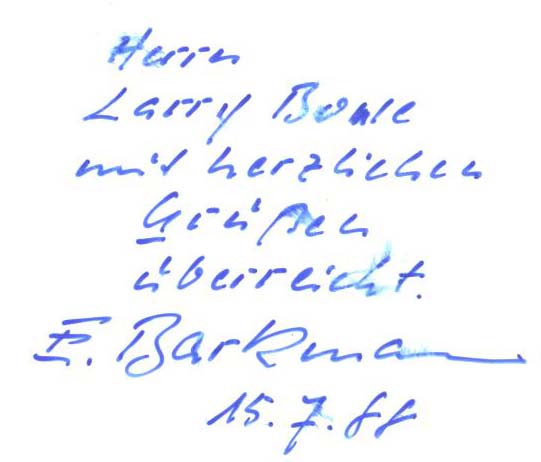 Herrn
Larry
mit herzlichen
Grüßen
überreicht.
E. Barkmann
15.7.88